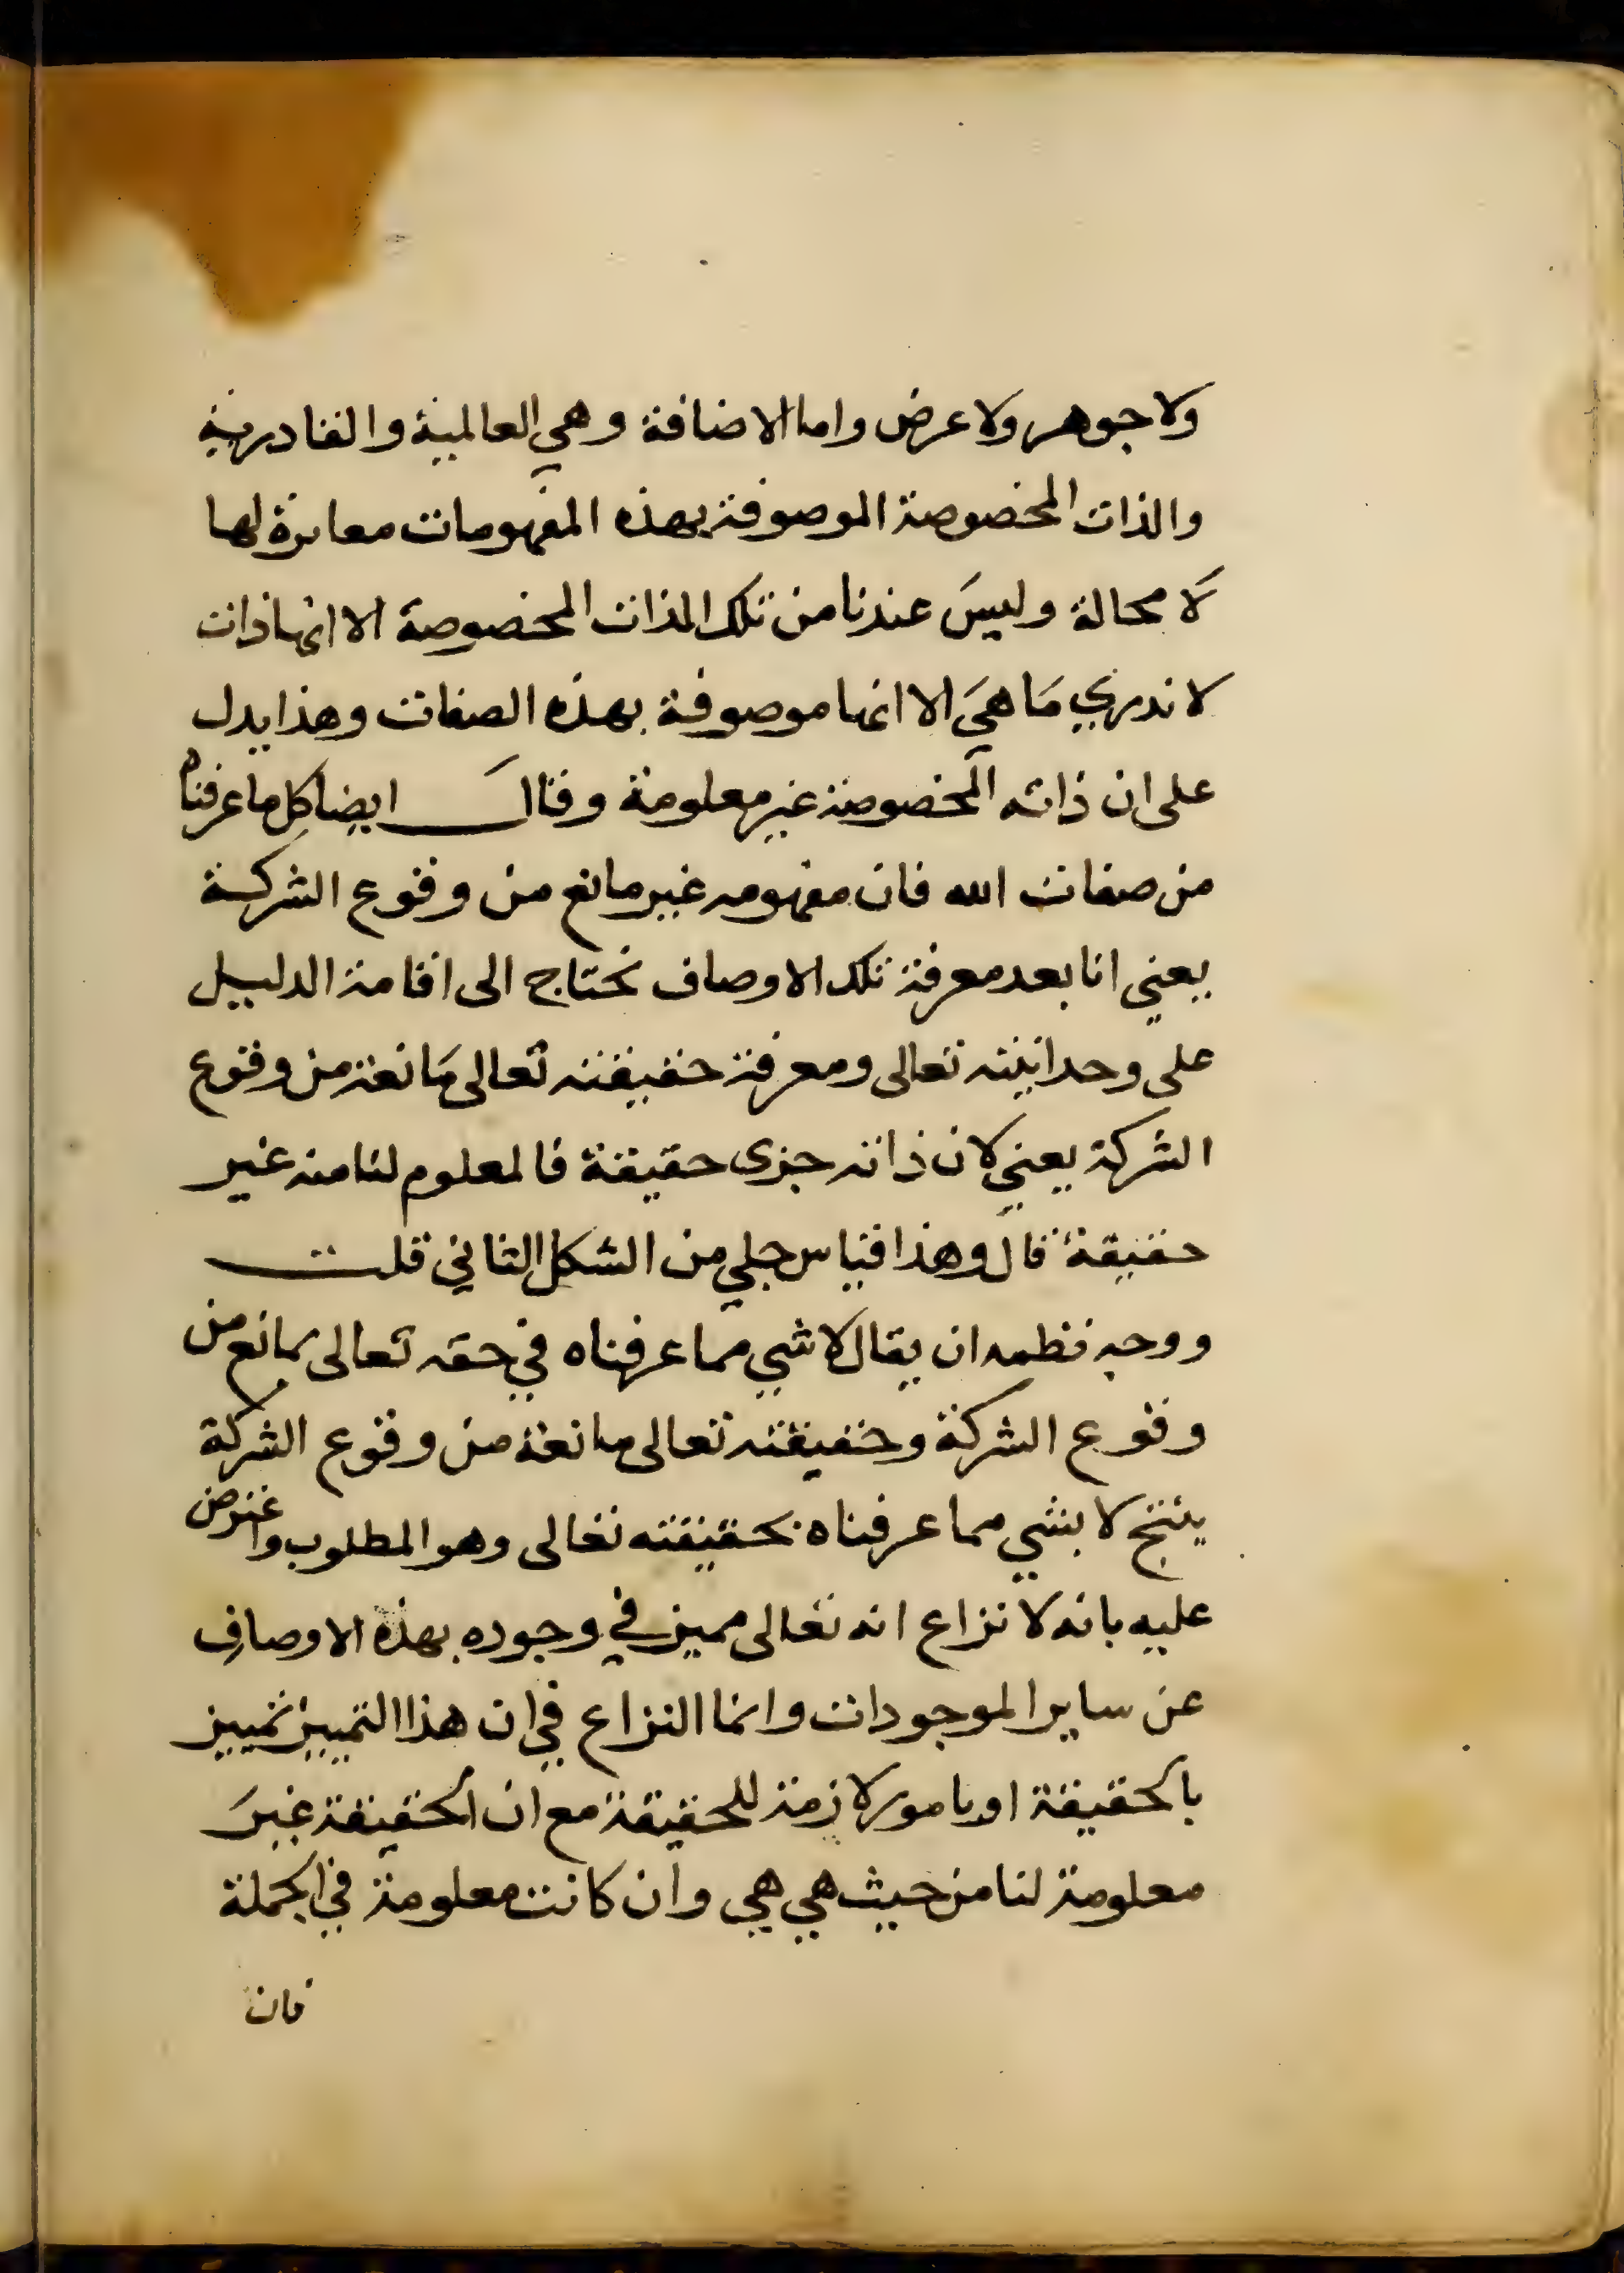 ولا جوهر ولا عرض واما الاضافة وهي العالمية والقادرية
والذات المخصوصة الموصوفة بهذه المفهومات مغايرة لها
لا محالة وليسَ عندنا من تلك الذات المخصوصة الا انها ذات
لا ندري مَا هيَ الا انها موصوفة بهذه الصفات وهذا يدل
على ان ذاته المخصوصة غير معلومة وقالَ ايضا كل ما عرفناه
من صفات الله فان مفهومه غير مانع من وقوع الشركة
يعني انا بعد معرفة تلك الاوصاف نحتاج الى اقامة الدليل
على وحدانيته تعالى ومعرفة حقيقته تعالى مَانعة من وقوع
الشركة يعني لان ذاته جزى حقيقة فالمعلوم لنا منه غير
حقيقة قال وهذا قياس جلي من الشكل الثاني قلت
ووجه نظمه ان يقال لا شي مما عرفناه في حقه تعالى بمانع من
وقوع الشركة وحقيقته تعالى مانعة من وقوع الشركة
ينتج لا بشي مما عرفناه بحقيقته تعالى وهو المطلوب واعترض
عليه بانه لا نزاع انه تعالى مميز في وجوده بهذه الاوصاف
عن ساير الموجودات وانما النزاع في ان هذا التمييز تمييز
بالحقيقة او بامور لازمة للحقيقة مع ان الحقيقة غيرَ
معلومة لنا من حيث هي هي وان كانت معلومة في الجملة
فان